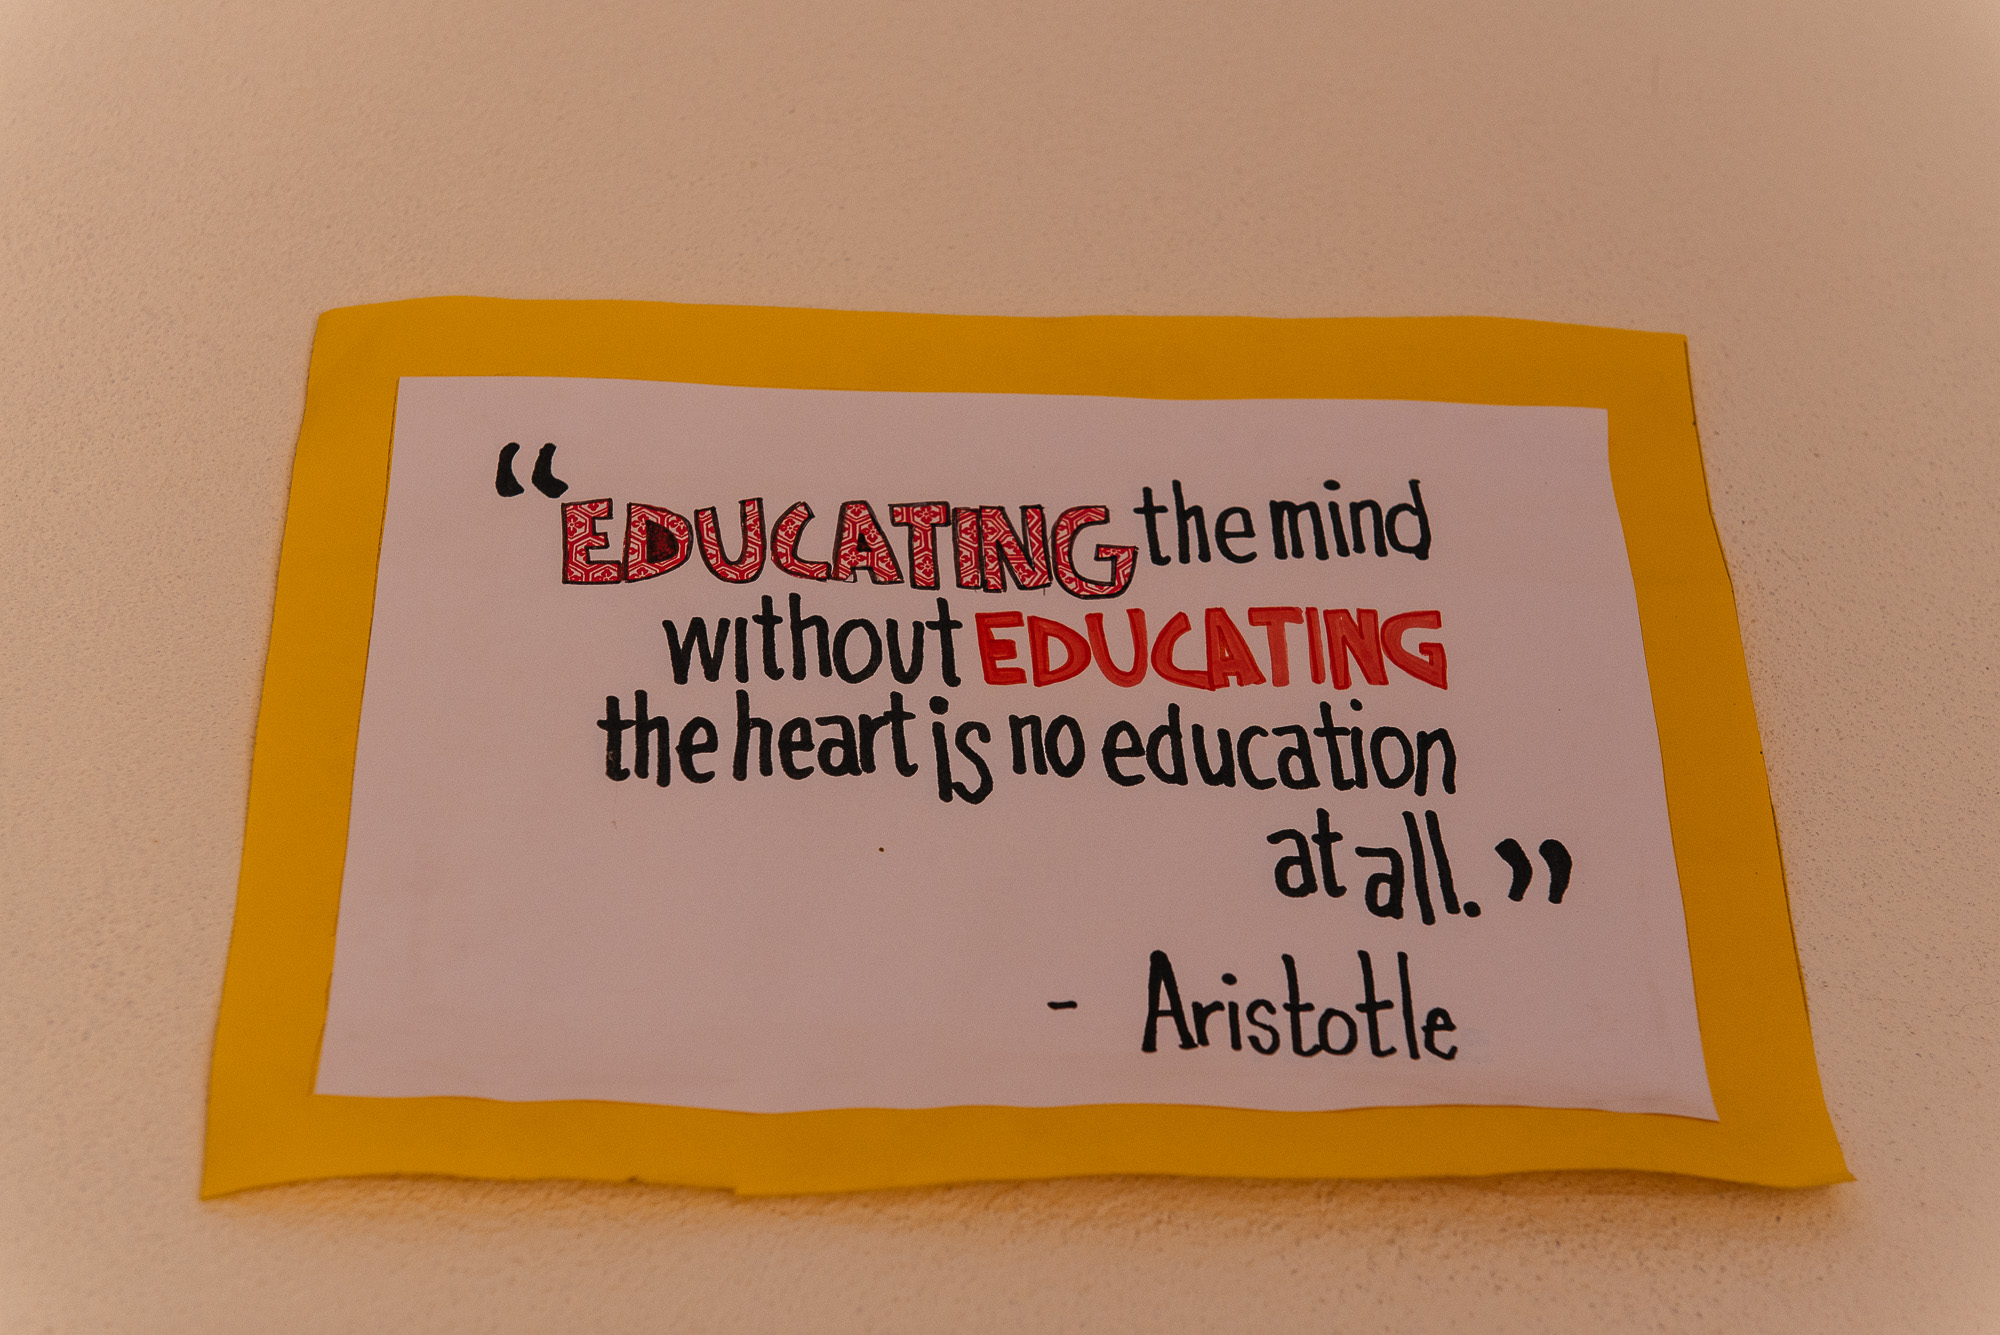 “EDUCATING the mind
without EDUCATING
the heart is no education
at all.”
- Aristotle